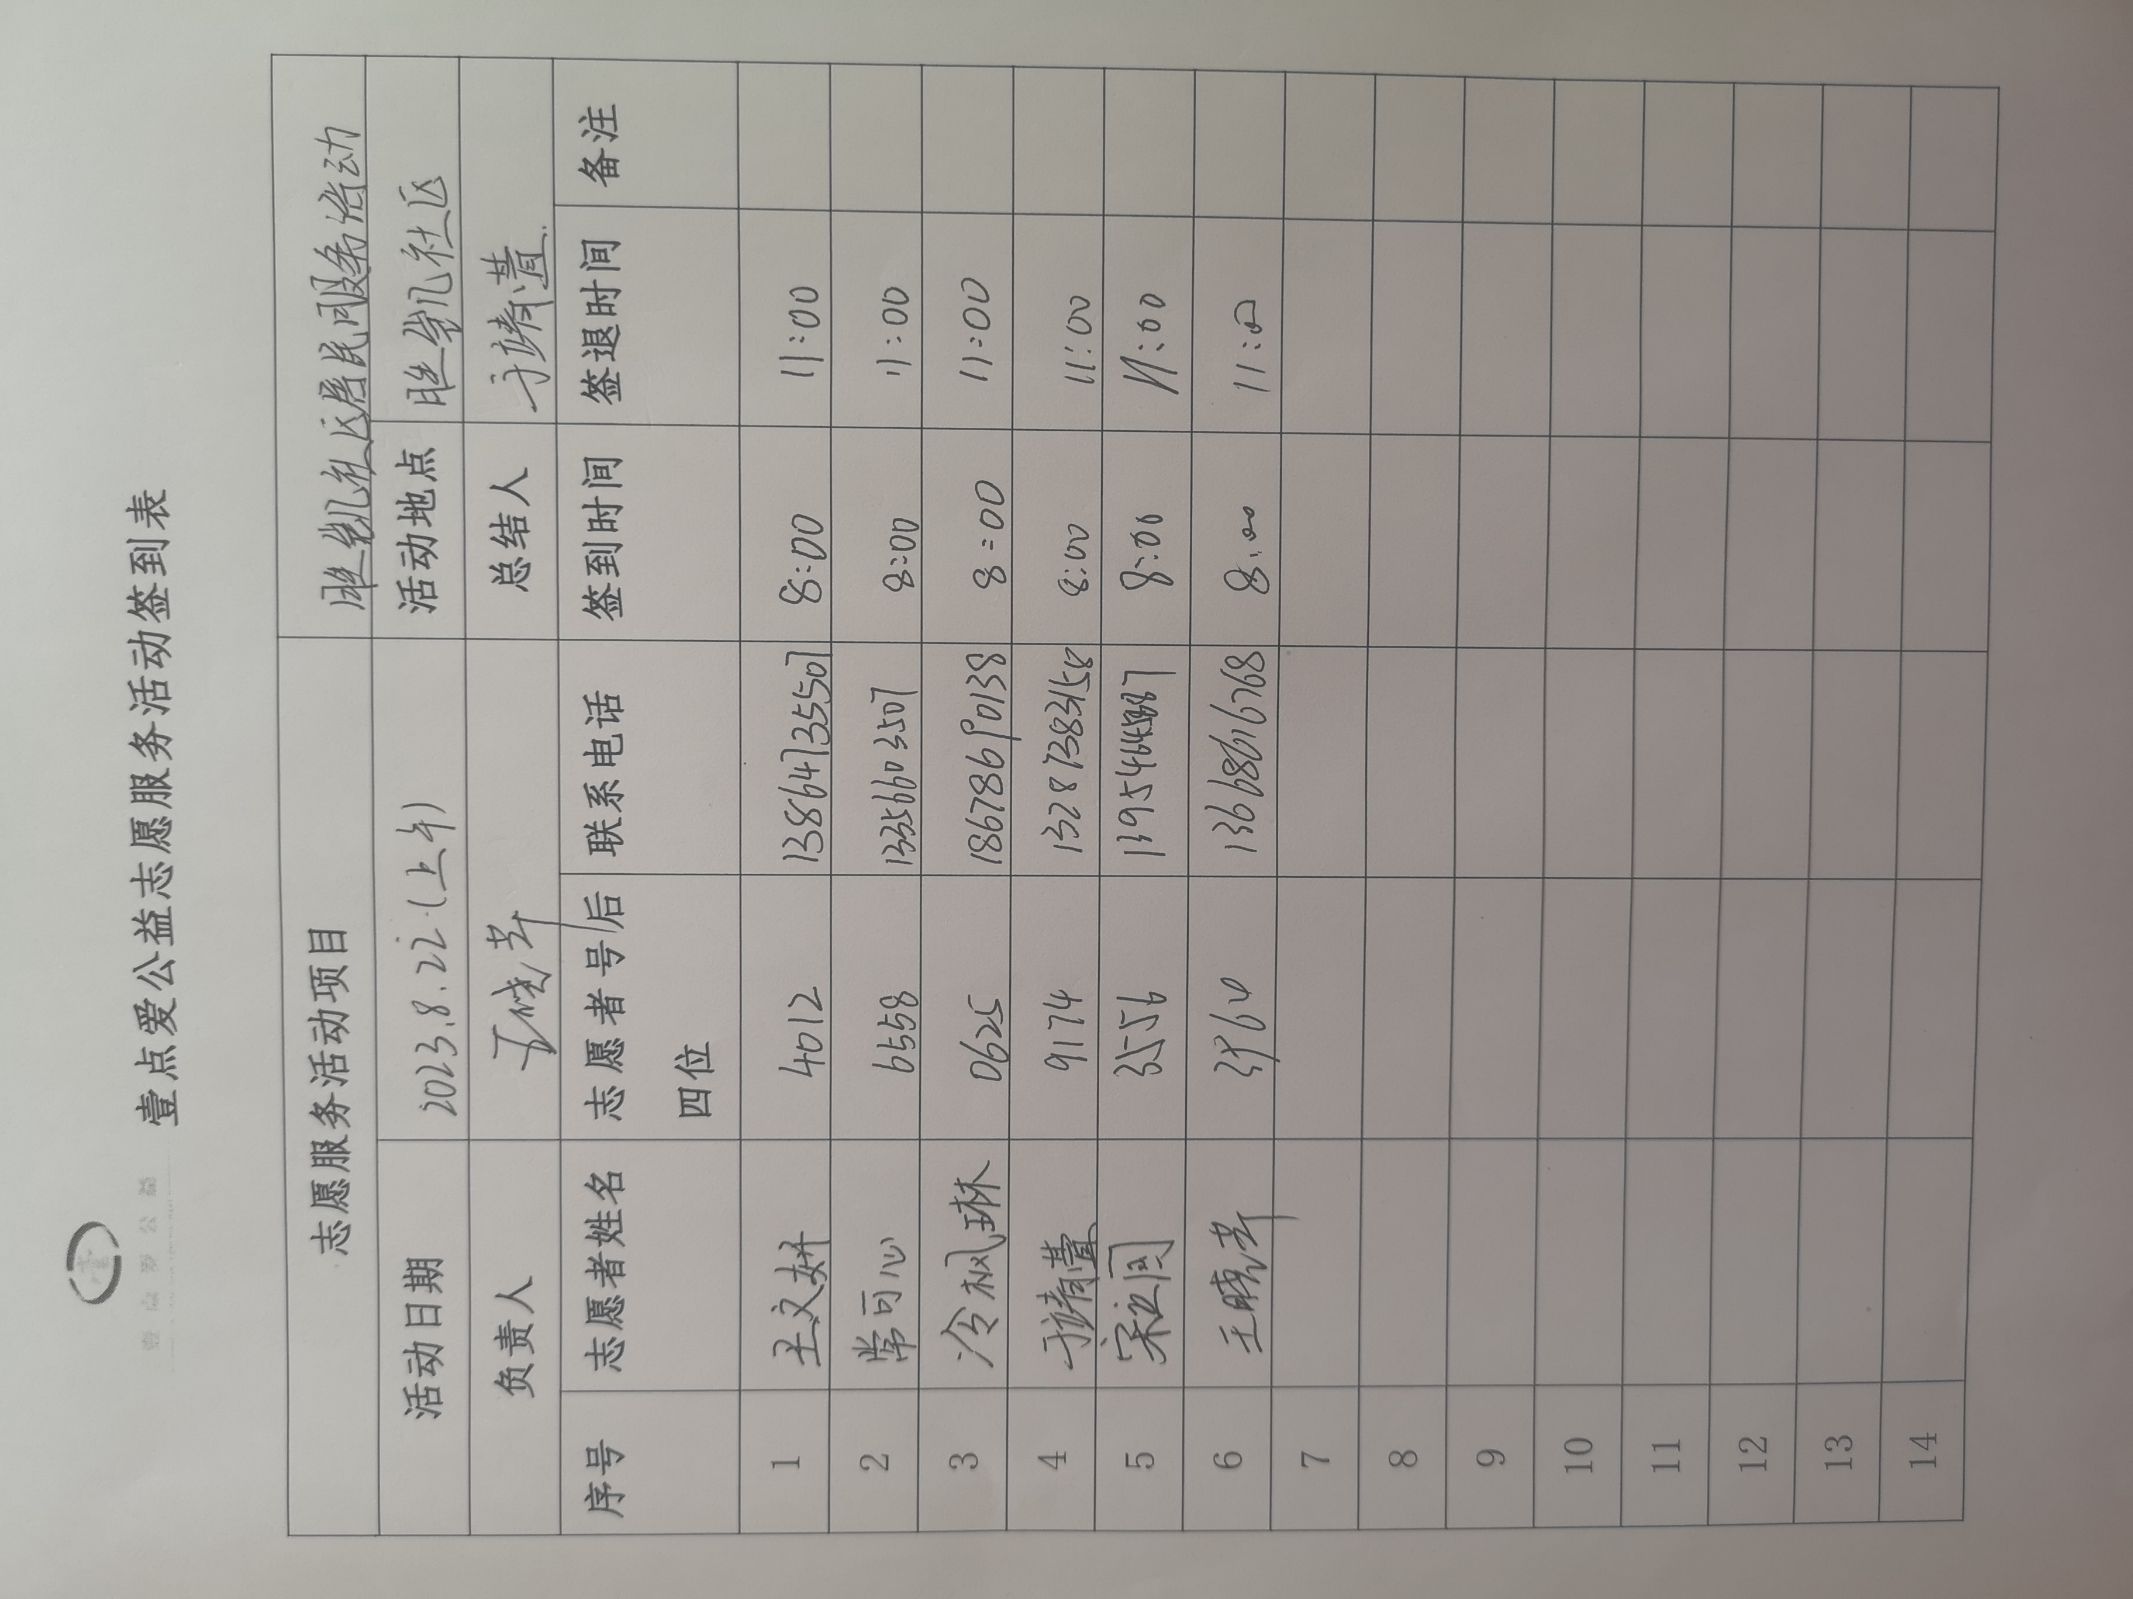 壹点爱公益
壹点爱公益志愿服务活动签到表
志愿服务活动项目 胜凯社区居民服务活动
活动日期 2023.8.22.(上午) 活动地点 胜凯社区
负责人 王晓芹 总结人 于婧萱
序号 志愿者姓名 志愿者号后四位 联系电话 签到时间 签退时间 备注
1 王文妍 4012 13864735507 8:00 11:00
2 常可心 6558 13356603507 8:00 11:00
3 冷枫琳 0625 18678690138 8:00 11:00
4 于婧萱 9174 8:00 11:00
5 3556 8:00 11:00
6 王晓芹 3964 13686616768 8:00 11:00
7
8
9
10
11
12
13
14